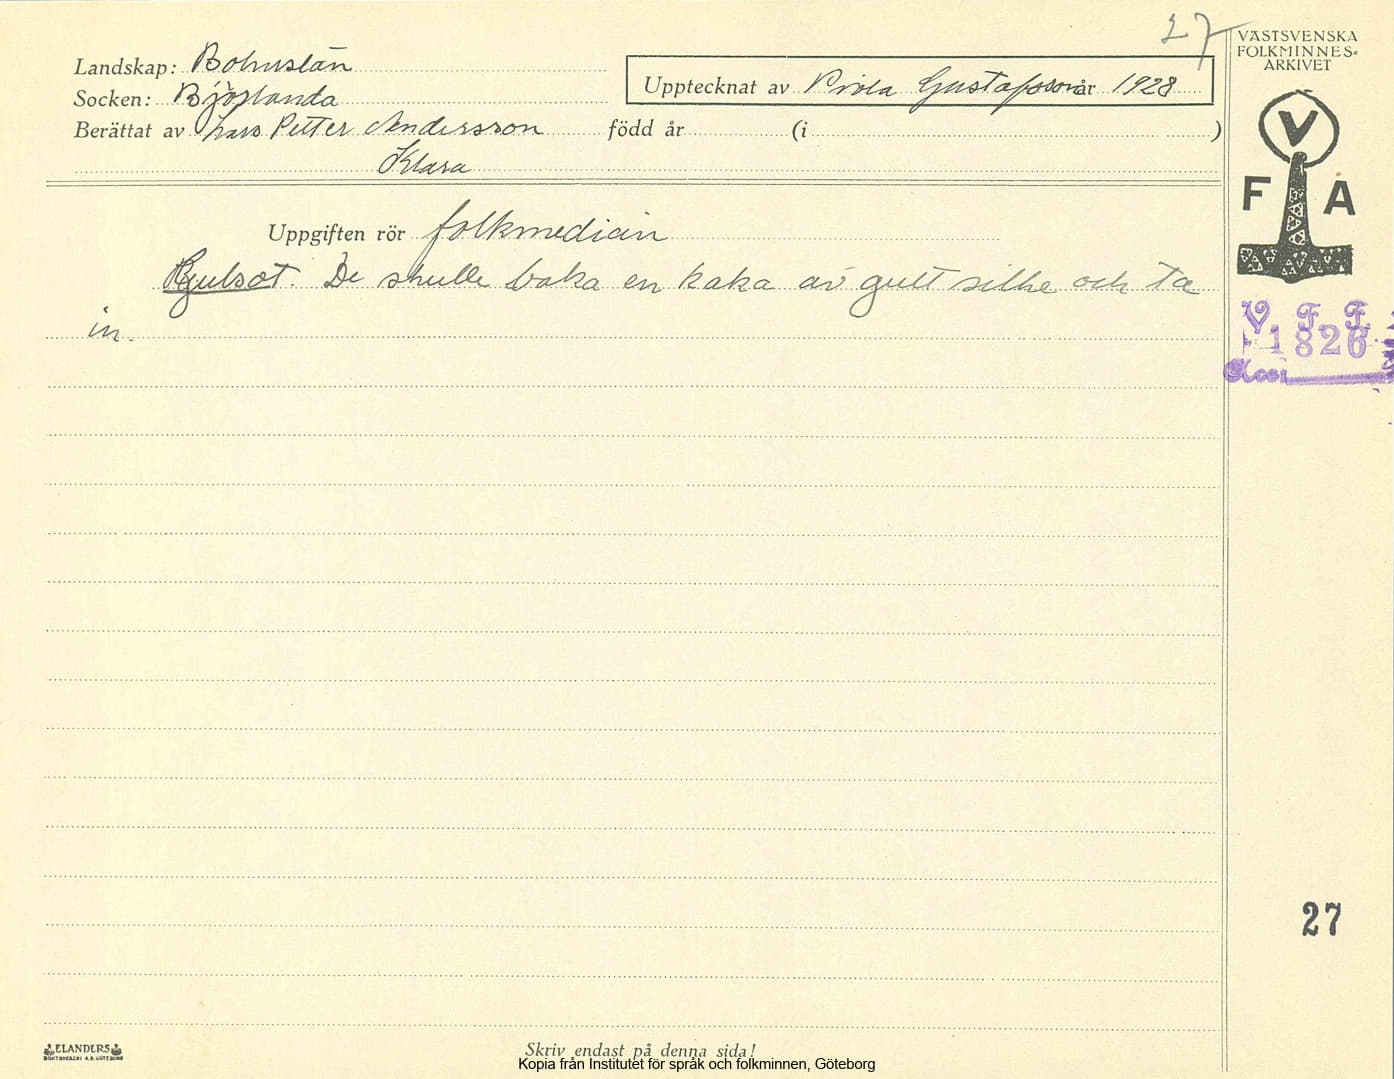 27
VÄSTSVENSKA
FOLKMINNES-
ARKIVET
Landskap: Bohuslän
Socken: Björlanda
Upptecknat av Viola Gustafsson år 1928
Berättat av Lars Petter Andersson född år (i )
Klara
V
F A
Uppgiften rör folkmedicin
Gulsot. De skulle baka en kaka av gult silke och ta
in.
V. F. F.
1826
Acc.
27
ELANDERS
BOKTRYCKERI A.B. GÖTEBORG
Skriv endast på denna sida!
Kopia från Institutet för språk och folkminnen, Göteborg